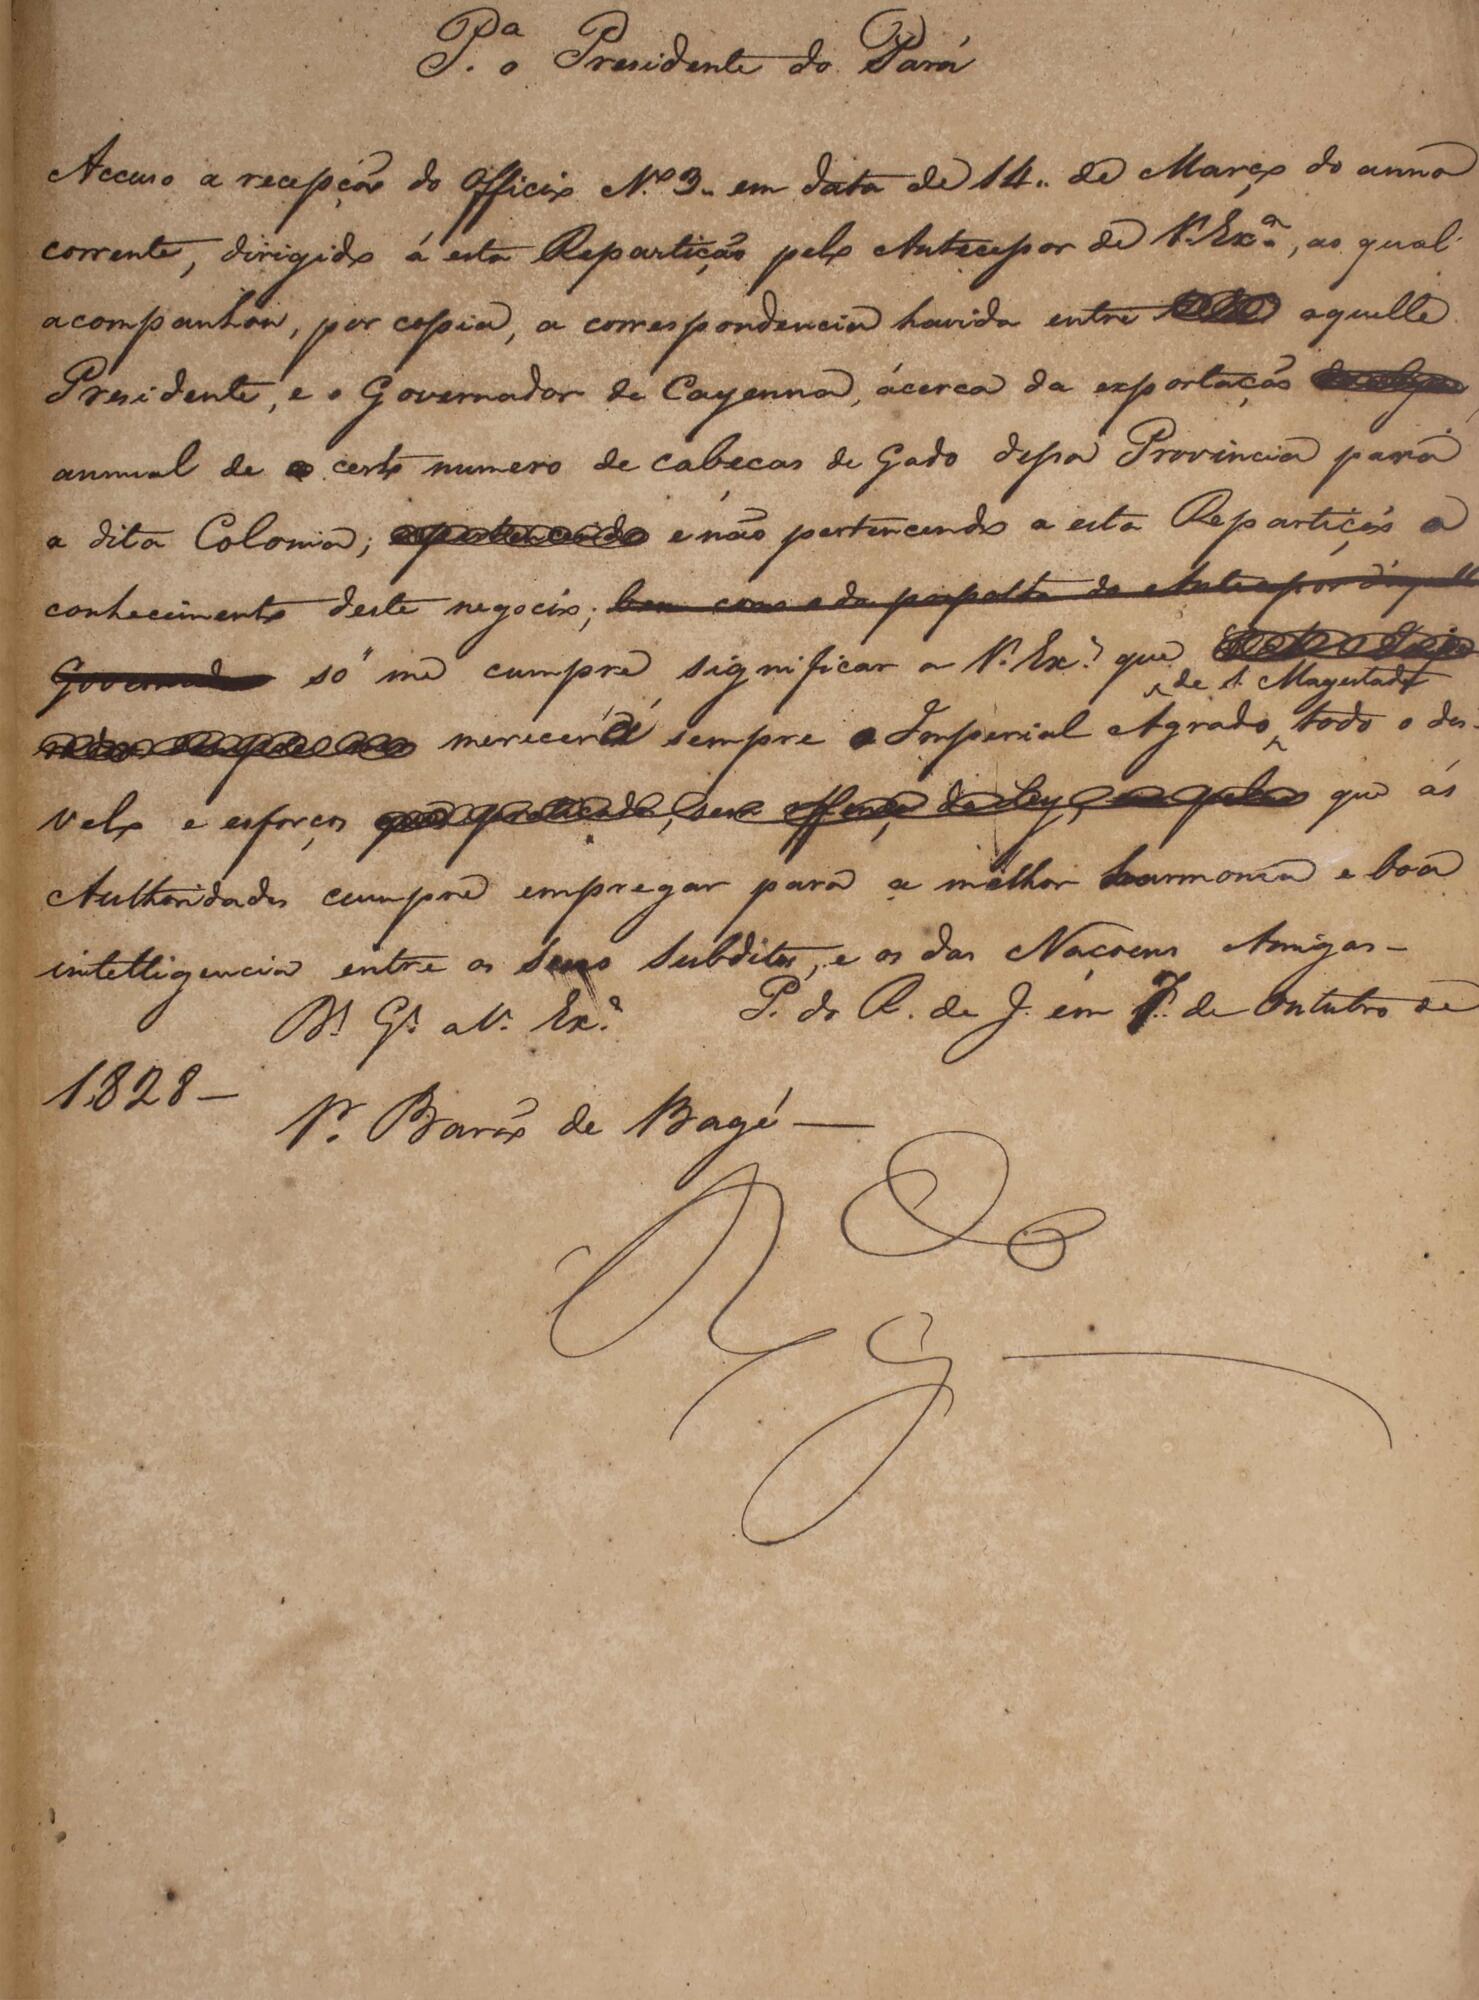 P.ª o Presidente do Pará
Accuso a recepção do Officio N.º 3.. em data de 14.. de Março do anno
corrente, dirigido á esta Repartição pelo Antecessor de V. Ex.ª, ao qual
acompanhou, por copia, a correspondencia havida entre aquelle
Presidente, e o Governador de Cayenna, ácerca da exportação
annual de certo numero de cabeças de Gado dessa Provincia para
a dita Colonia; e não pertencendo a esta Repartição o
conhecimento deste negocio; bem como da resposta do Antecessor
Governador só me cumpre significar a V. Ex.ª que
de S. Magestade
merecerá sempre o Imperial Agrado todo o des-
velo e esforço que praticado, sem offensa da Ley, que ás
Authoridades cumpre empregar para a melhor harmonia e boa
intelligencia entre os seus Subditos, e os das Nacoens Amigas -
D.s G.e a V. Ex.ª P. do R. de J. em 7.. de Outubro de
1828 -
Sr. Barão de Bagé -